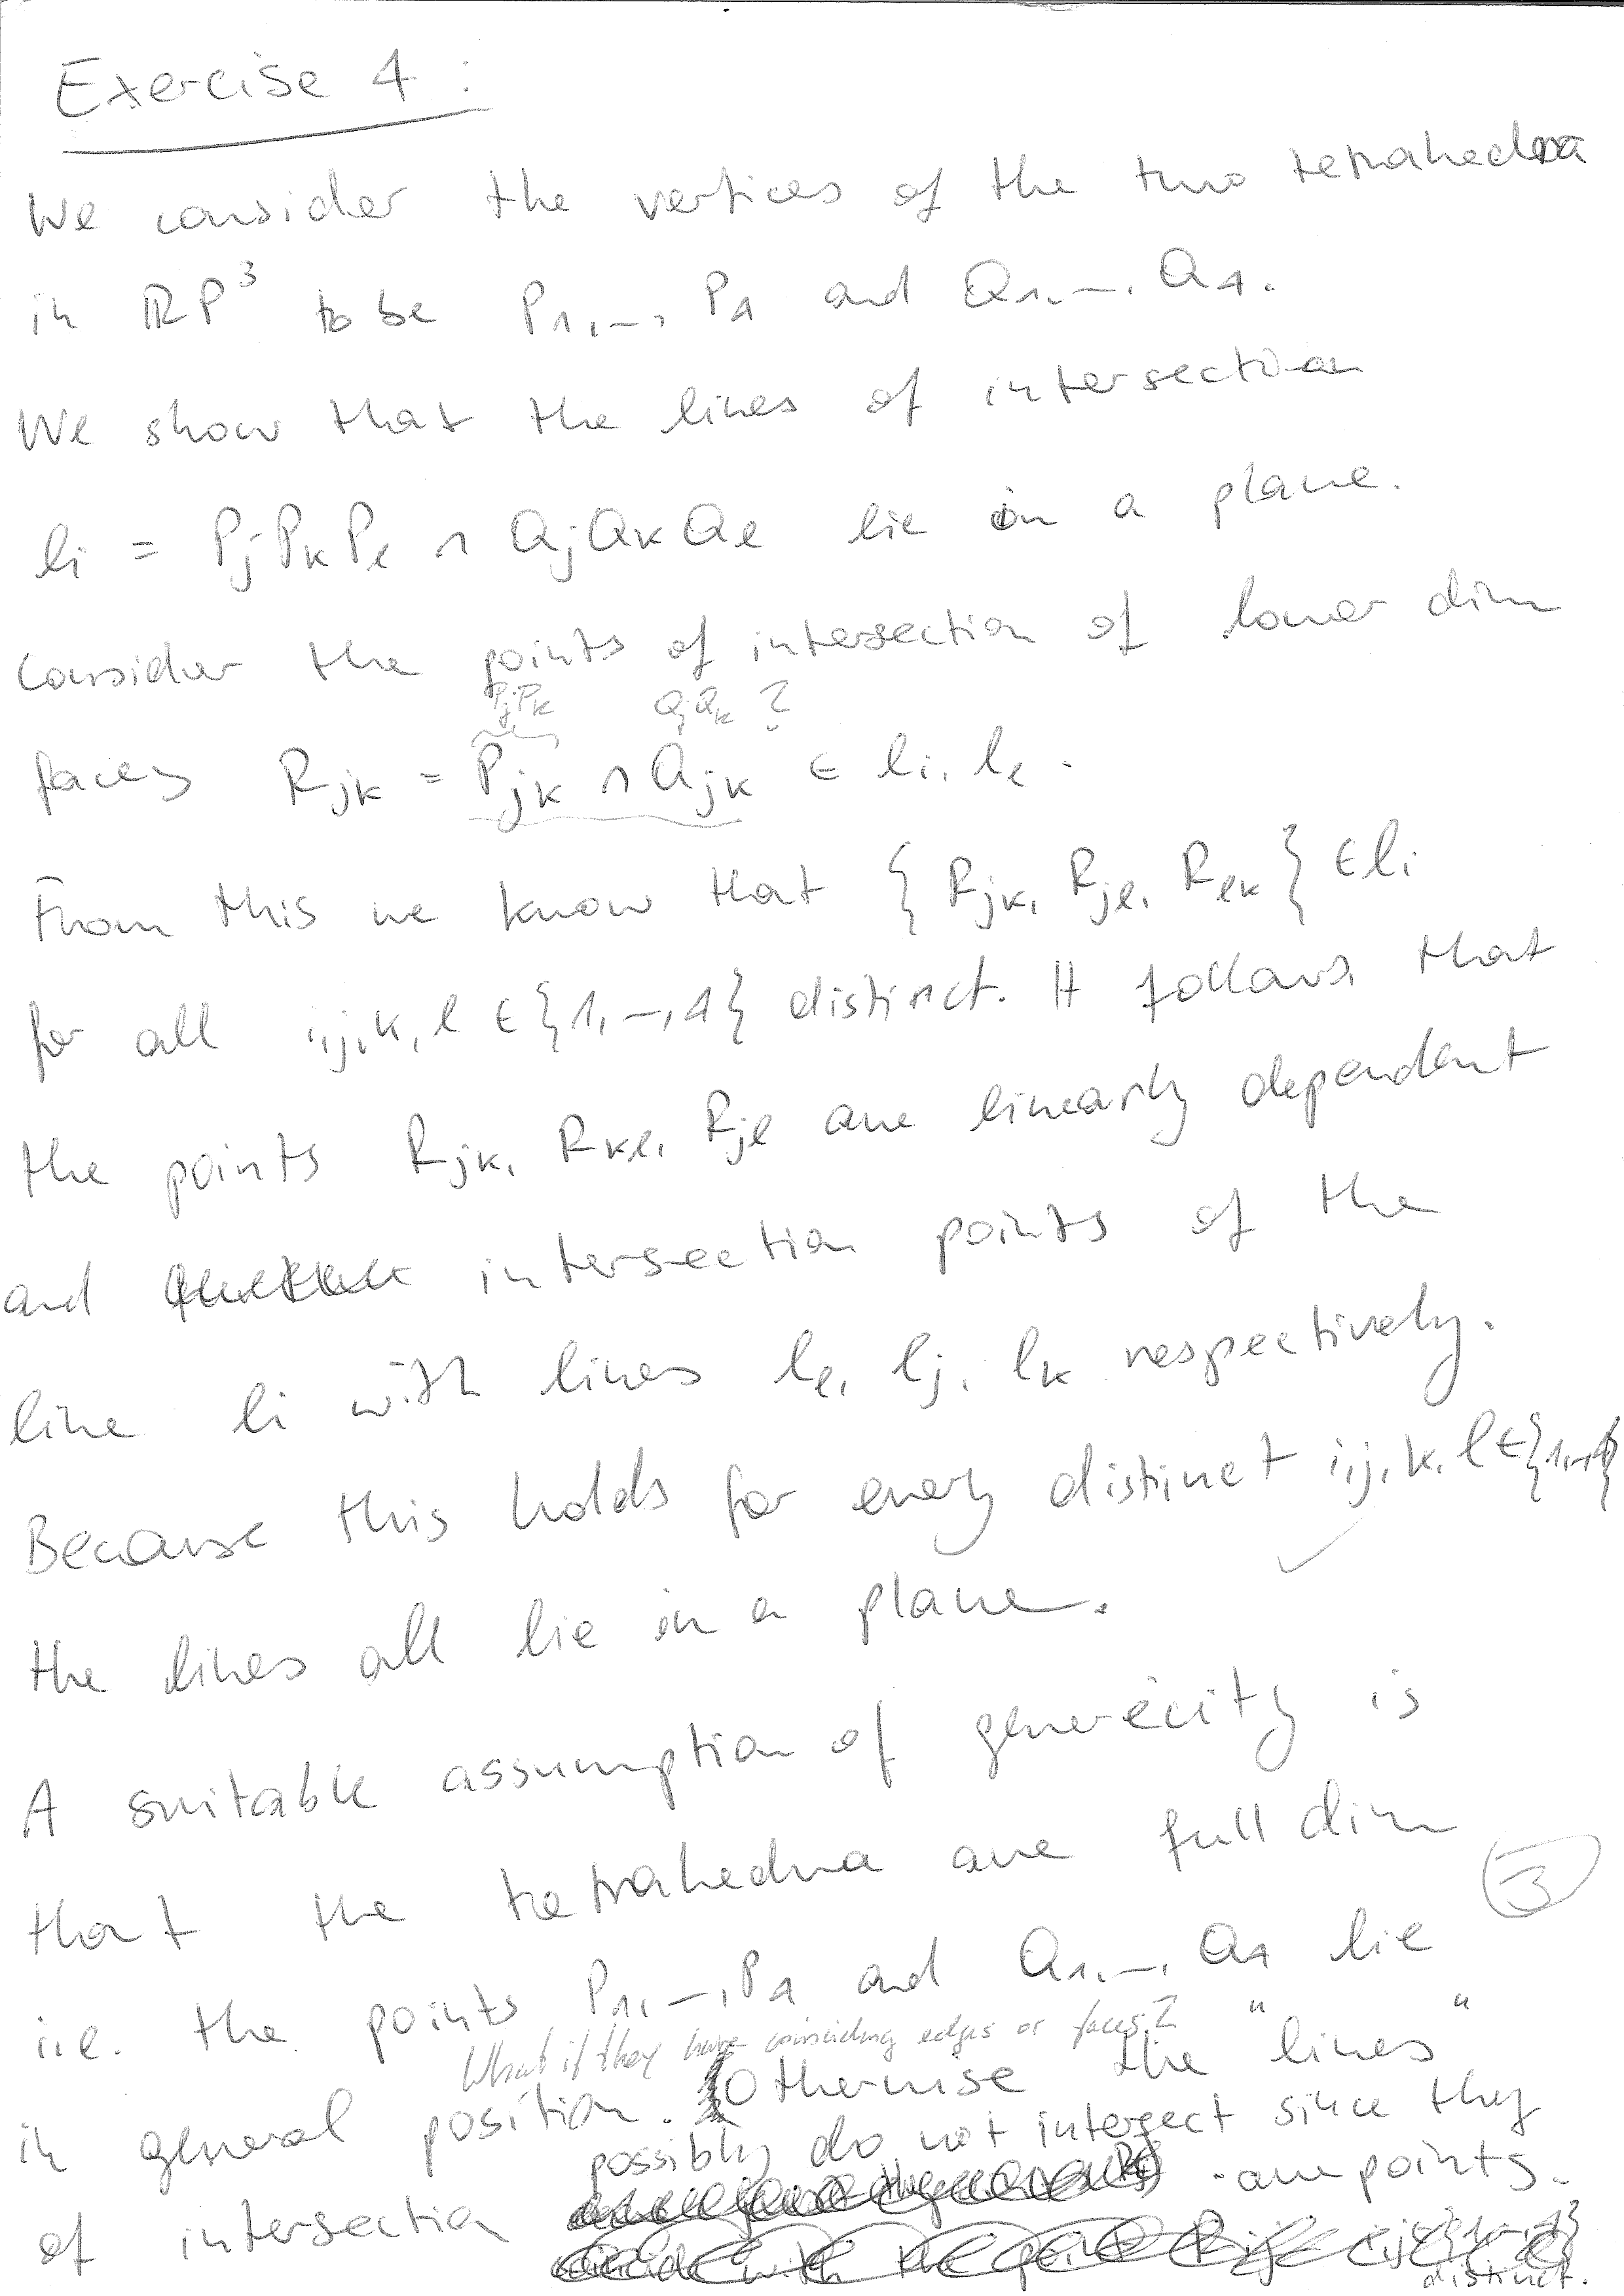 Exercise 4:
We consider the vertices of the two tetrahedra
in RP³ to be P₁,..., P₄ and Q₁,..., Q₄.
We show that the lines of intersection
lᵢ = PⱼPₖPₗ ∩ QⱼQₖQₗ lie in a plane.
Consider the points of intersection of lower dim
PⱼPₖ QⱼQₖ ?
faces Rⱼₖ = Pⱼₖ ∩ Qⱼₖ ∈ lᵢ, lₗ.
From this we know that { Rⱼₖ, Rⱼₗ, Rₗₖ } ∈ lᵢ
for all i,j,k,l ∈ {1,..,4} distinct. It follows that
the points Rⱼₖ, Rₖₗ, Rⱼₗ are linearly dependent
and intersection points of the
line lᵢ with lines lₗ, lⱼ, lₖ respectively.
Because this holds for every distinct i,j,k,l ∈ {1,..,4}
the lines all lie in a plane. ✓
A suitable assumption of genericity is
that the tetrahedra are full dim
③
i.e. the points P₁,..,P₄ and Q₁,..., Q₄ lie
What if they have coinciding edges or faces?
in general position. Otherwise the "lines"
of intersection possibly do not intersect since they
are points.
distinct.